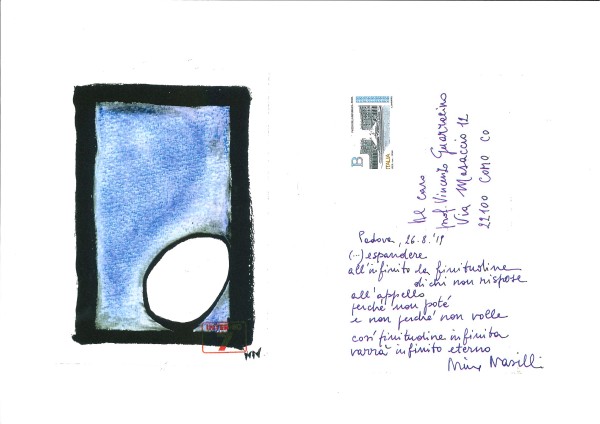 B
ITALIA
Al caro
prof. Vincenzo Guarracino
Via Masaccio 12
22100 COMO CO
Padova, 26.8.'19
(...) espandere
all'infinito la finitudine
di chi non rispose
all'appello
perché non poté
e non perché non volle
così finitudine infinita
varrà infinito eterno
NN